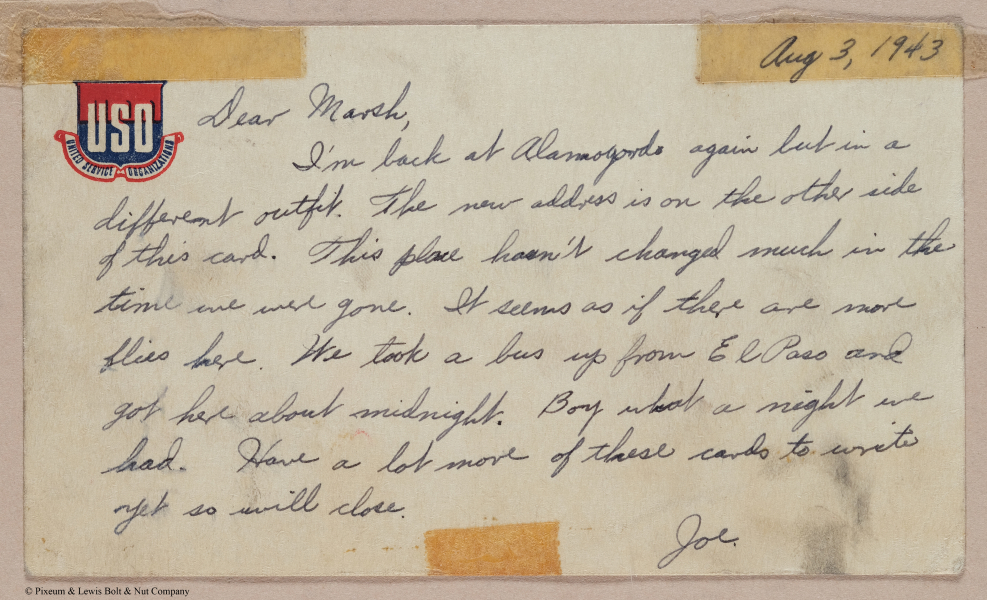 Aug 3, 1943
USO
UNITED SERVICE ORGANIZATIONS
Dear Marsh,
I'm back at Alamogordo again but in a
different outfit. The new address is on the other side
of this card. This place hasn't changed much in the
time we were gone. It seems as if there are more
flies here. We took a bus up from El Paso and
got here about midnight. Boy what a night we
had. Have a lot more of these cards to write
yet so will close.
Joe.
© Pixeum & Lewis Bolt & Nut Company